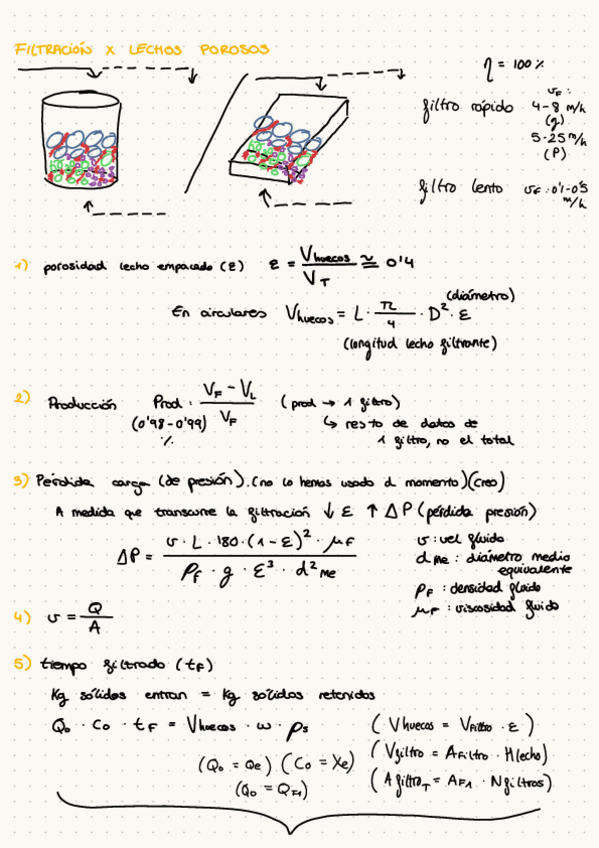 FILTRACIÓN X LECHOS POROSOS
η = 100 %
filtro rápido
v_F :
4-8 m/h
(g)
5-25 m/h
(P)
filtro lento v_F : 0'1-0'5
m/h
1) porosidad lecho empacado (ε) ε = V_huecos / V_T ≃ 0'4
En circulares V_huecos = L · π/4 · D² · ε
(diámetro)
(longitud lecho filtrante)
2) Producción Prod : (V_F - V_L) / V_F (prod → 1 filtro)
(0'98-0'99)
%
↳ resto de datos de
1 filtro, no el total
3) Pérdida carga (de presión). (no lo hemos usado d momento)(creo)
A medida que transcurre la filtración ↓ ε ↑ ΔP (pérdida presión)
ΔP = (v · L · 180 · (1-ε)² · μ_F) / (ρ_F · g · ε³ · d²_me)
v : vel fluido
d_me : diámetro medio
equivalente
ρ_F : densidad fluido
μ_F : viscosidad fluido
4) v = Q / A
5) tiempo filtrado (t_F)
Kg sólidos entran = Kg sólidos retenidos
Q_o · C_o · t_F = V_huecos · ω · ρ_s (V_huecos = V_filtro · ε)
(Q_o = Q_e) (C_o = X_e) (V_filtro = A_filtro · H_lecho)
(Q_o = Q_F1) (A_filtro_T = A_F1 · N_filtros)